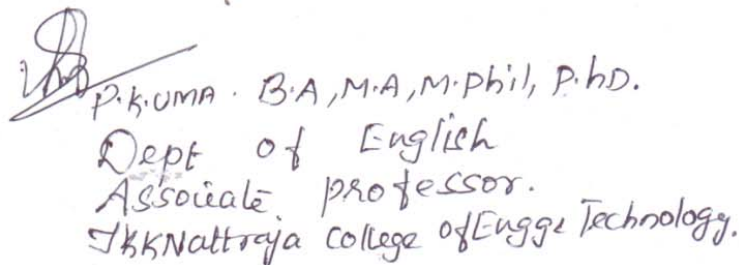 P.K.UMA. B.A, M.A, M.Phil, P.hD.
Dept of English
Associate professor.
JKKNattraja college of Engg & Technology.